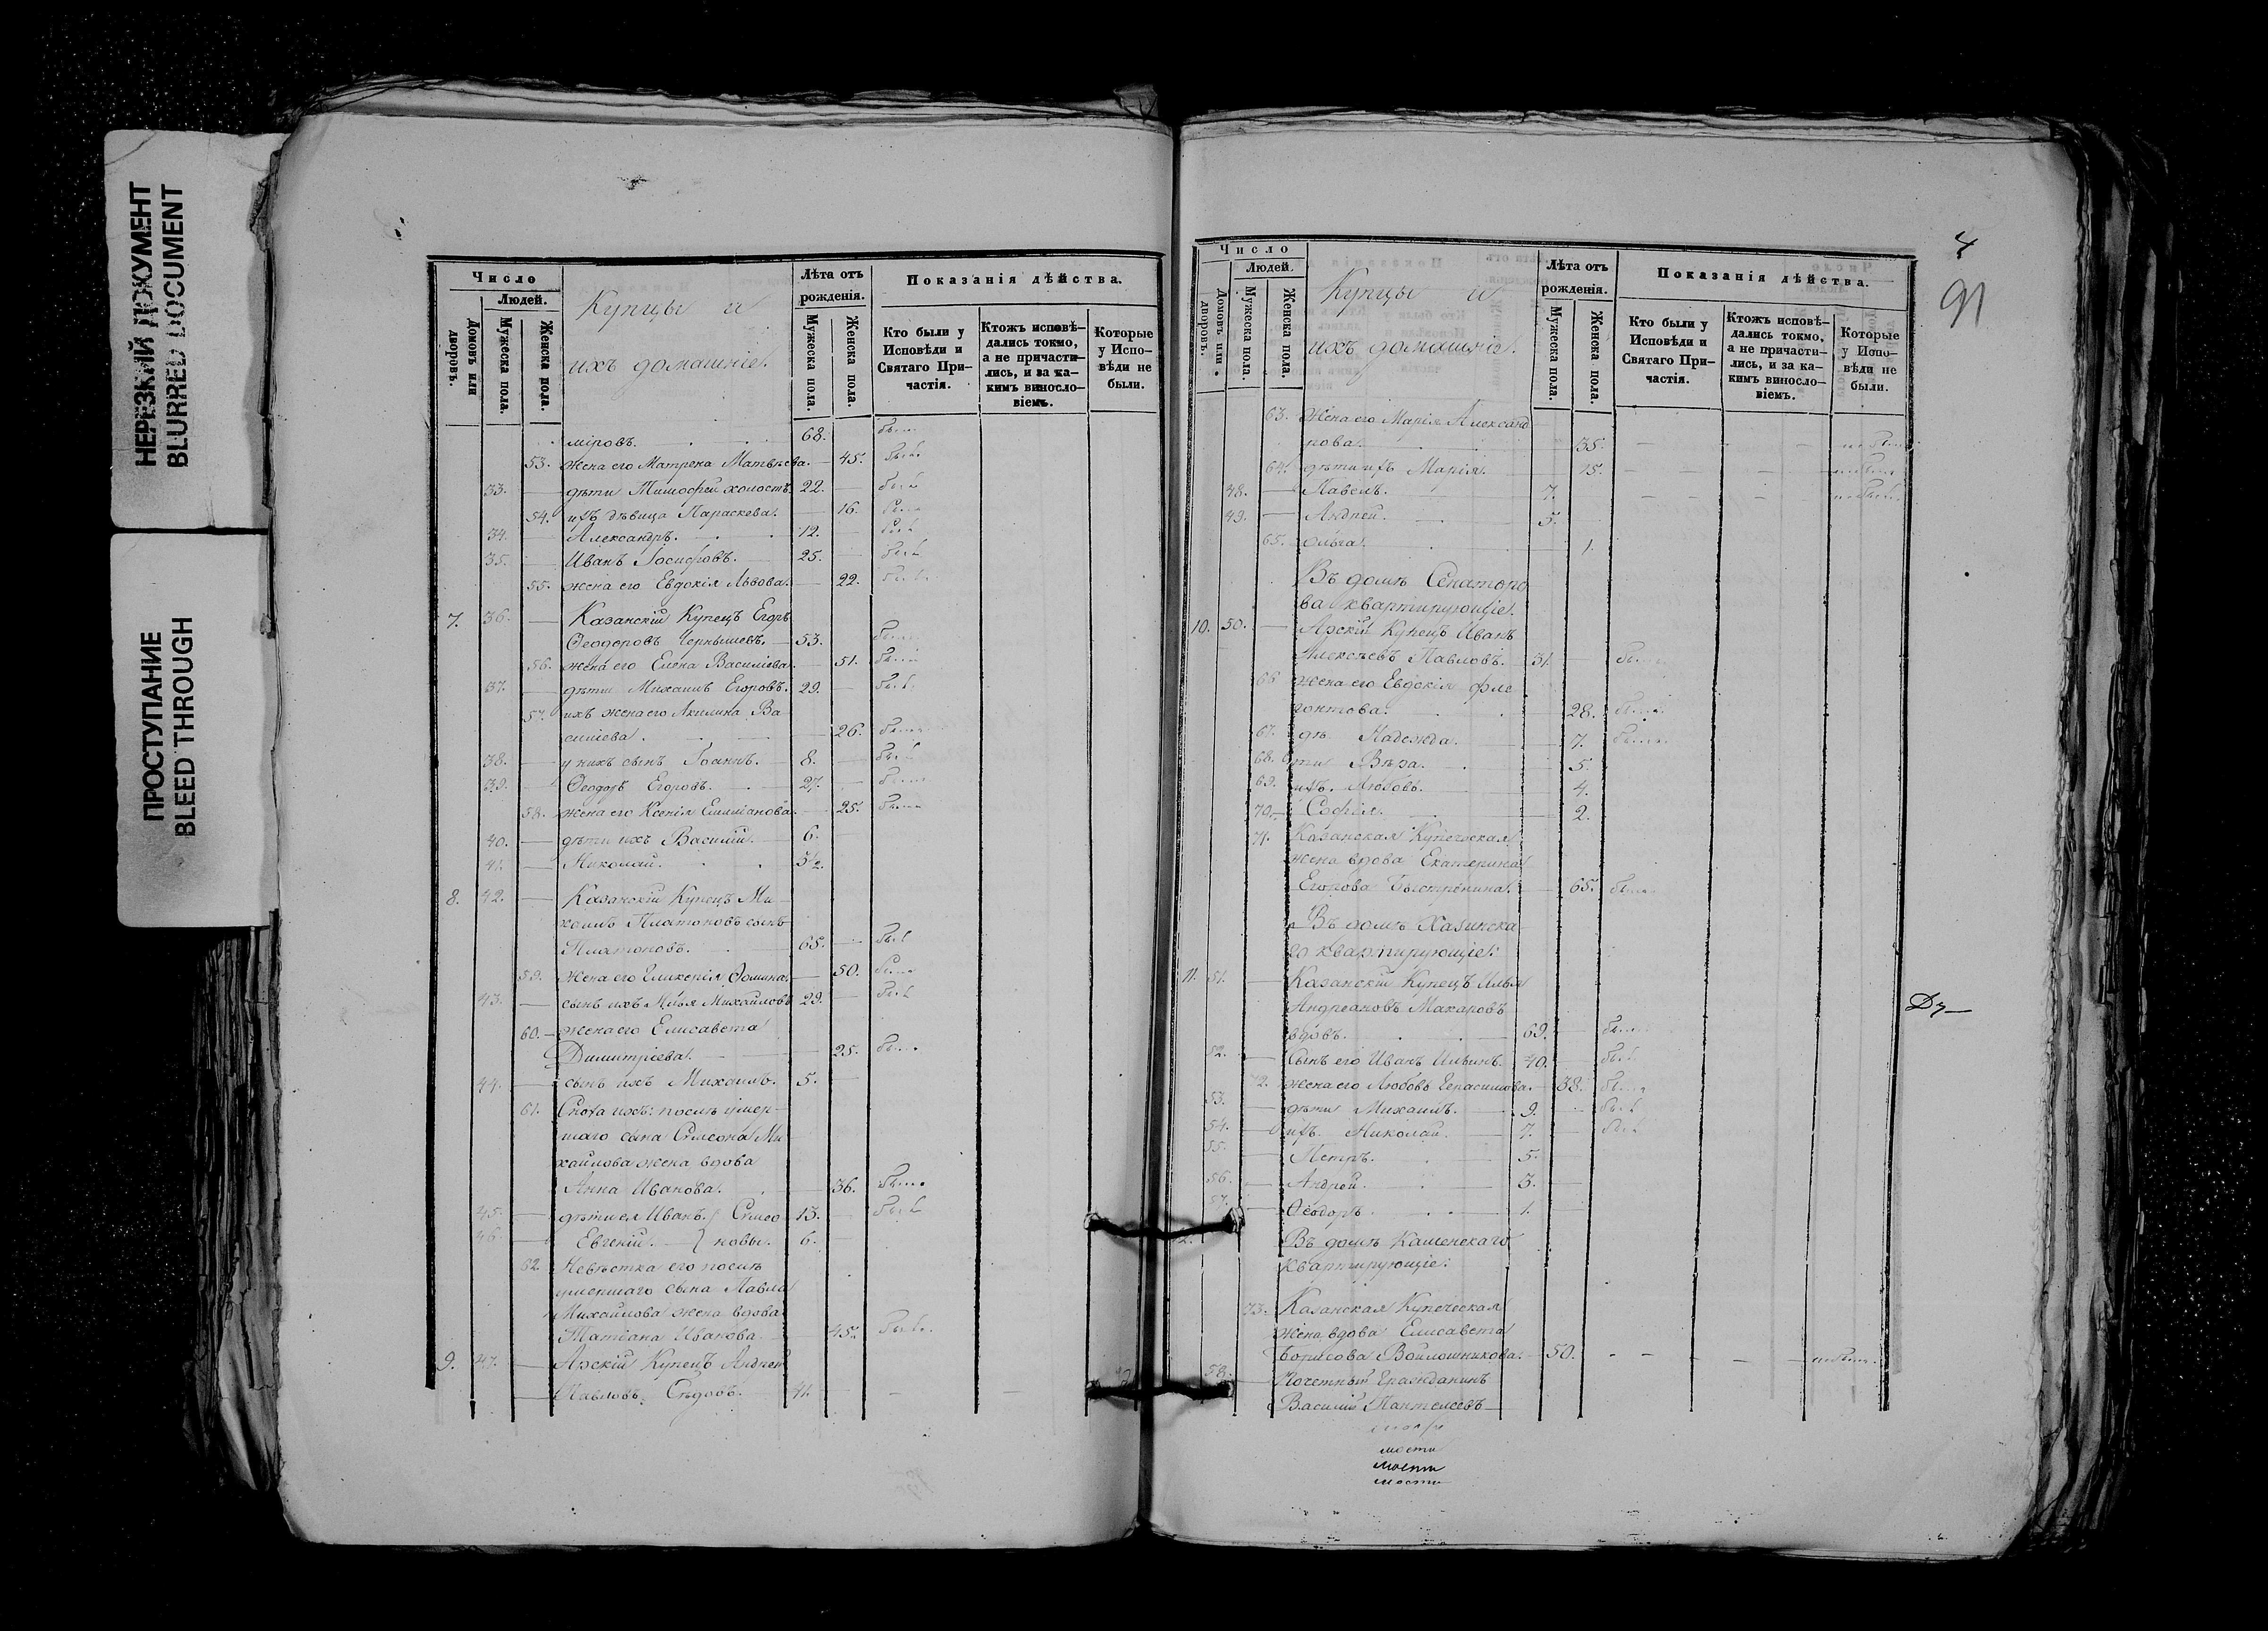 НЕРЕЗКИЙ ДОКУМЕНТ
BLURRED DOCUMENT
ПРОСТУПАНИЕ
BLEED THROUGH
Число
Людей.
Домовъ или дворовъ.
Мужеска пола.
Женска пола.
Купцы и
ихъ домашніе.
Лѣта отъ рожденія.
Мужеска пола.
Женска пола.
Показанія дѣйства.
Кто были у Исповѣди и Святаго Причастія.
Ктожъ исповѣдались токмо, а не причастились, и за какимъ винословіемъ.
Которые у Исповѣди не были.
міровъ. 68.
53. жена его Матрена Матвѣева. 45. былъ
33. дѣти Тимофей холостъ. 22. былъ
54. ихъ дѣвица Параскева. 16.
34. Александръ. 12.
35. Иванъ Іосифовъ. 25. былъ
55. жена его Евдокія Львова. 22.
7. 36. Казанскій Купецъ Егоръ
Ѳеодоровъ Чернышевъ. 53.
56. жена его Елена Василіева. 51. была
37. дѣти Михаилъ Егоровъ. 29. былъ
57. ихъ жена его Акилина Ва
силіева. 26. была
38. у нихъ сынъ Іоаннъ. 8. былъ
39. Ѳеодоръ Егоровъ. 27.
58. жена его Ксенія Емиліанова. 25. была
40. дѣти ихъ Василій. 6.
41. Николай. 3½.
8. 42. Казанскій Купецъ Ми
хаилъ Платоновъ сынъ
Платоновъ. 65. былъ
59. Жена его Ѳомина. 50. была
43. сынъ ихъ Илья Михайловъ 29. былъ
60. жена его Елисавета
Димитріева. 25. была
44. сынъ ихъ Михаилъ. 5.
61. Сноха ихъ: послѣ умер-
шаго сына Симеона Ми
хайлова жена вдова
Анна Иванова. 36. была
45. дѣти ея Иванъ. } Симео 13. былъ
46. Евгеній. } новы. 6.
62. Невѣстка его послѣ
умершаго сына Павла
Михайлова жена вдова
Татіана Иванова. 45.
9. 47. Арскій Купецъ Андрей
Павловъ Сѣдовъ. 41.
4
91
Число
Людей.
Домовъ или дворовъ.
Мужеска пола.
Женска пола.
Купцы и
ихъ домашніе.
Лѣта отъ рожденія.
Мужеска пола.
Женска пола.
Показанія дѣйства.
Кто были у Исповѣди и Святаго Причастія.
Ктожъ исповѣдались токмо, а не причастились, и за какимъ винословіемъ.
Которые у Исповѣди не были.
63. Жена его Марія Александ
рова. 35. не была
64. дѣти ихъ Марія. 15. не была
48. Павелъ. 7. не былъ
49. Андрей. 5.
65. Ольга. 1.
Въ домѣ Сенаторо
ва квартирующіе.
10. 50. Арскій Купецъ Иванъ
Алексѣевъ Павловъ. 31.
66. жена его Евдокія Фле
гонтова. 28. была
67. дѣ Надежда. 7. была
68. ти Вѣра. 5.
69. ихъ. Любовь. 4.
70. Софія. 2.
71. Казанская Купеческая
жена вдова Екатерина
Егорова 65. была
Въ домѣ Хазинска
го квартирующіе:
11. 51. Казанскій Купецъ Илья
Андреановъ Макаровъ
вдовъ. 69.
52. Сынъ его Иванъ Ильинъ. 40. былъ
72. жена его Любовь Герасимова. 38. была
53. дѣти Михаилъ. 9. былъ
54. ихъ. Николай. 7. былъ
55. Петръ. 5.
56. Андрей. 3.
57. Ѳеодоръ. 1.
12. Въ домѣ Каменскаго
квартирующіе:
73. Казанская Купеческая
жена вдова Елисавета
Борисова Войлошникова. 50. не была
58. Почетный Гражданинъ
Василій Пантелеевъ
мости
мости
мости